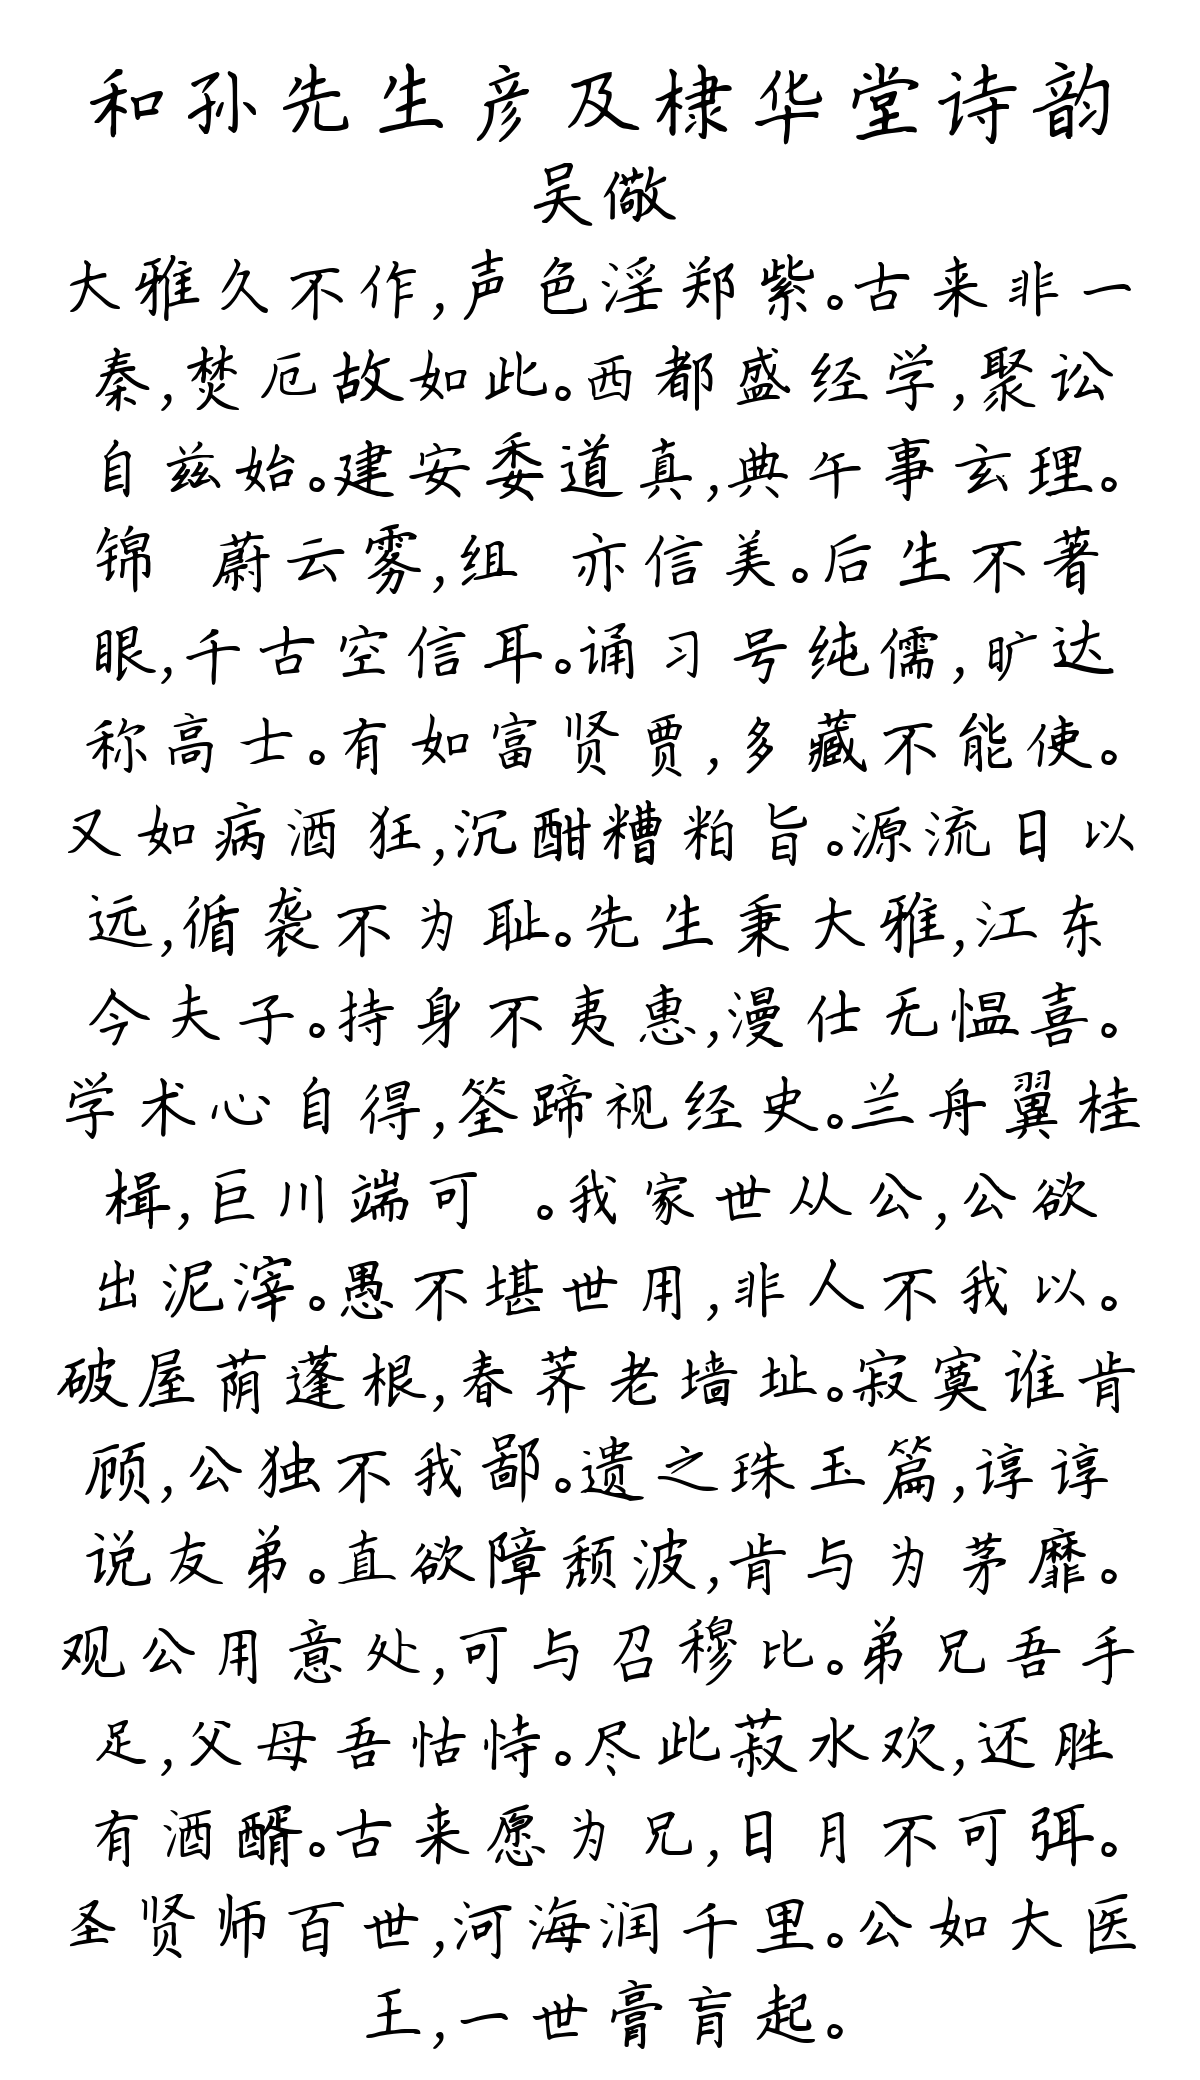 和孙先生彦及棣华堂诗韵
吴儆
大雅久不作,声色淫郑紫。古来非一
秦,焚厄故如此。西都盛经学,聚讼
自兹始。建安委道真,典午事玄理。
锦 蔚云雾,组 亦信美。后生不著
眼,千古空信耳。诵习号纯儒,旷达
称高士。有如富贤贾,多藏不能使。
又如病酒狂,沉酣糟粕旨。源流日以
远,循袭不为耻。先生秉大雅,江东
今夫子。持身不夷惠,漫仕无愠喜。
学术心自得,筌蹄视经史。兰舟翼桂
楫,巨川端可 。我家世从公,公欲
出泥滓。愚不堪世用,非人不我以。
破屋荫蓬根,春荠老墙址。寂寞谁肯
顾,公独不我鄙。遗之珠玉篇,谆谆
说友弟。直欲障颓波,肯与为茅靡。
观公用意处,可与召穆比。弟兄吾手
足,父母吾怙恃。尽此菽水欢,还胜
有酒醑。古来愿为兄,日月不可弭。
圣贤师百世,河海润千里。公如大医
王,一世膏肓起。